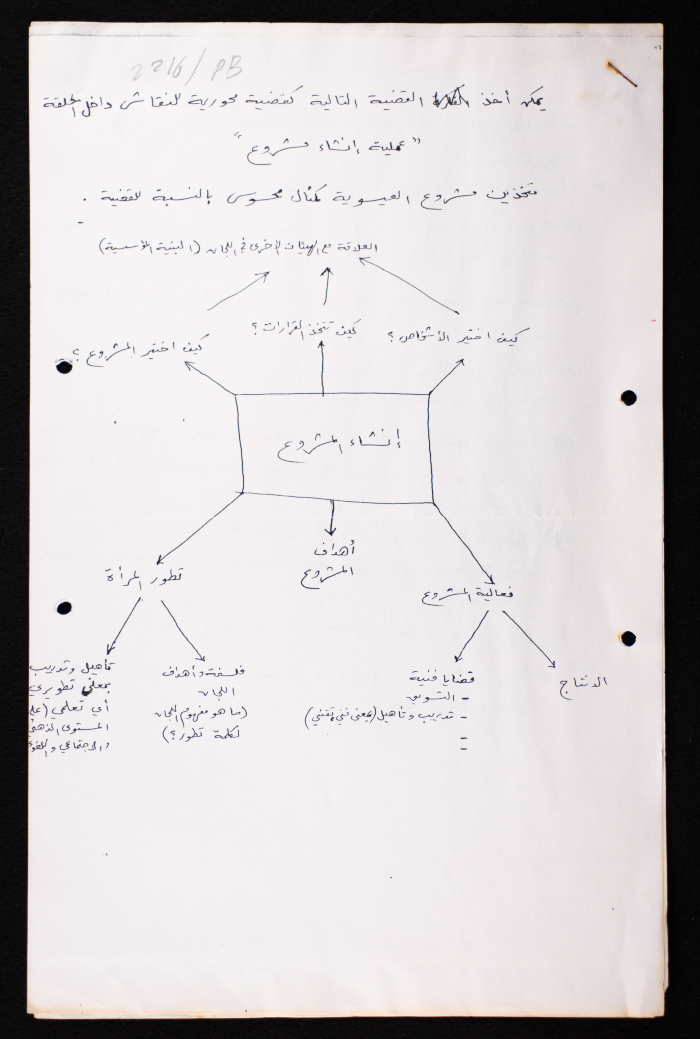 2216/PB
يمكن أخذ القضية التالية كقضية محورية للنقاش داخل الحلقة
"عملية إنشاء مشروع"
متخذين مشروع العيسوية كمثال محسوس بالنسبة للقضية .
العلاقة مع الهيئات الأخرى في اللجان (البنية المؤسسية)
كيف اختير الأشخاص ؟
كيف تتخذ القرارات ؟
كيف اختير المشروع ؟
إنشاء المشروع
أهداف
المشروع
تطور المرأة
فعالية المشروع
الانتاج
قضايا فنية
- التسويق
- تدريب وتأهيل (بمعنى فني تقني)
-
-
فلسفة وأهداف
اللجان
(ما هو مفهوم اللجان
لكلمة تطور ؟)
تأهيل وتدريب
بمعنى تطويري
أي تعلمي (على
المستوى الذهني
والاجتماعي